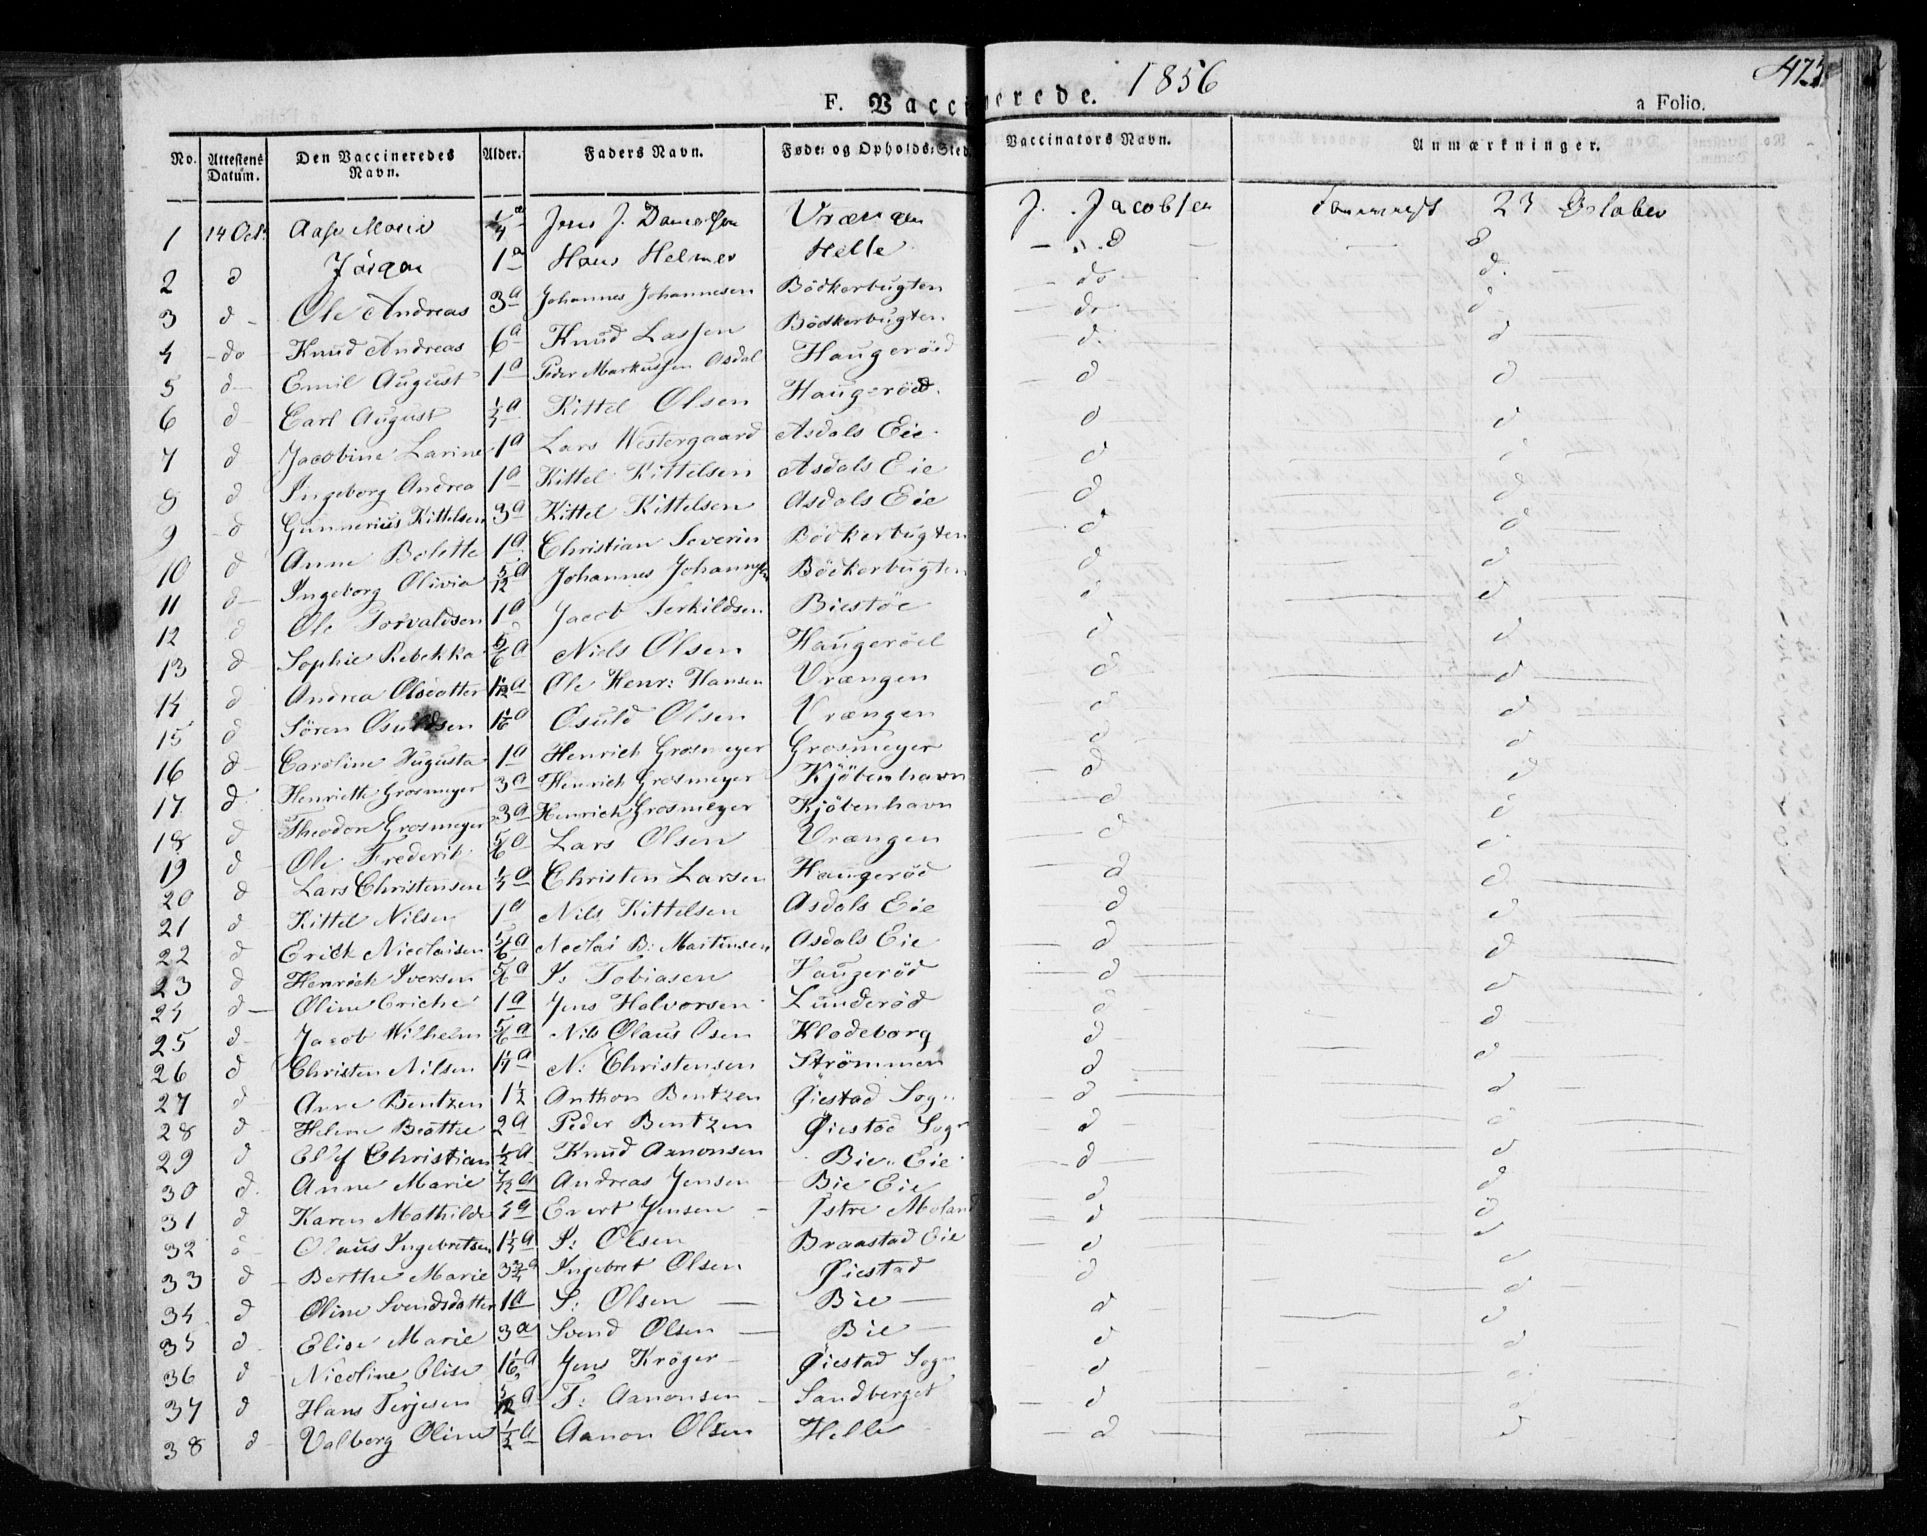 1856 425
F. Vaccinerede. a Folio.
No. Attestens Datum. Den Vaccineredes Navn. Alder. Faders Navn. Føde- og Opholds-Sted. Vaccinators Navn. Anmærkninger.
1 14 Oct. Aase Marie Jens J. Danielsen Vrængen J. Jacobsen 23 October
2 d Jörgen 1 a Hans Helmer Helle d d
3 d Ole Andreas 3 a Johannes Johannesen Bödkerbugten do d
4 do Knud Andreas 6 a Knud Lassen Bödkerbugten do d
5 d Emil August 1 a Peder Markussen Asdal Haugeröed d d
6 d Carl August ½ a Kittel Olsen Haugeröed d d
7 d Jacobine Larine 1 a Lars Westergaard Asdals Eie d d
8 d Ingeborg Andrea 1 a Kittel Kittelsen Asdals Eie d
9 d Gunnerius Kittelsen 3 a Kittel Kittelsen Asdals Eie d d
10 d Anne Bolette 1 a Christian Severin Bödkerbugten d d
11 d Ingeborg Olivia 5/12 a Johannes Johannesen Bödkerbugten d d
12 d Ole Torvaldsen 1 a Jacob Terkildsen Biestöe d d
13 d Sophie Rebekka 5/6 a Niels Olsen Haugeröed d d
14 d Andrea Olsdatter Ole Henr: Hansen Vrængen d d
15 d Sören Osuldsen 1 1/6 a Osuld Olsen Vrængen d d
16 d Caroline Augusta 1 a Henrich Grosmeyer Grosmeyer d d
17 d Henrieth Grosmeyer 3 a Henrich Grosmeyer Kjöbenhavn d d
18 d Theodore Grosmeyer 3 a Henrich Grosmeyer Kjöbenhavn d d
19 d Ole Frederik 5/6 a Lars Olsen Vrængen d d
20 d Lars Christensen ½ a Christen Larsen Haugeröd d d
21 d Kittel Nilsen 1 a Nils Kittelsen Asdals Eie d d
22 d Erick Nicolaisen 5/6 a B: Martinsen Asdals Eie d d
23 d Henrich Iversen 5/6 a I: Tobiasen Haugeröd d d
24 d Oline 1 a Jens Halvorsen Lunderöd d d
25 d Jacob Wilhelm 5/6 a Nils Olaus Osen Klodeborg d d
26 d Christen Nilsen a N: Christensen Strömmen d d
27 d Anne Bentzen 1½ Anthon Bentzen Øiestad Sogn d d
28 d Helene Beathe 2 a Peder Bentzen Øiestad Sogn d d
29 d Oluf Christian ½ a Knud Aanonsen Bie Eie d d
30 d Anne Marie 7/12 a Andreas Jensen Bie Eie d d
31 d Karen Mathilde a Evert Jensen Østre Moland d d
32 d Olaus Ingebretsen a S: Olsen Braastad Eie d d
33 d Berthe Marie a Ingebret Olsen Øiestad d d
34 d Oline Svendsdatter 1 a S: Olsen Bie d d
35 d Elise Marie 3 a Svend Olsen Bie d d
36 d Nicoline Elise 1 1/6 a Jens Kröger Øiestad Sogn d
37 d Hans Terjesen a T: Aanonsen Sandberget d
38 d Valborg Oline ½ a Aanon Olsen Helle d d